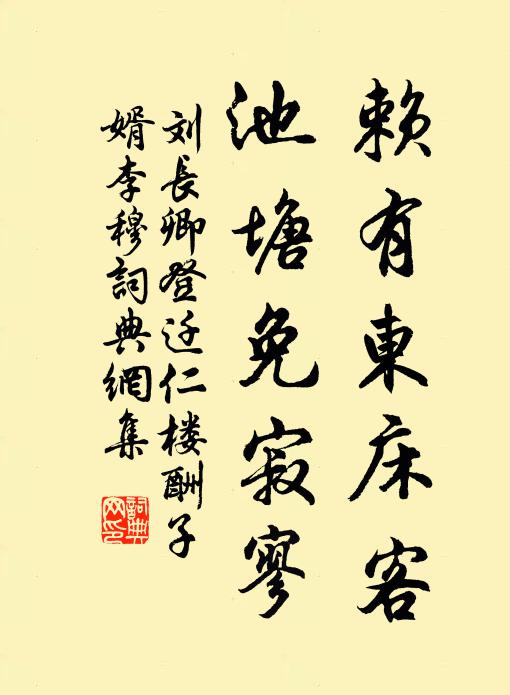 赖有東床客
池塘免寂寥
刘長卿登迁仁楼酬子
婿李穆詞典網集
詞典
网印